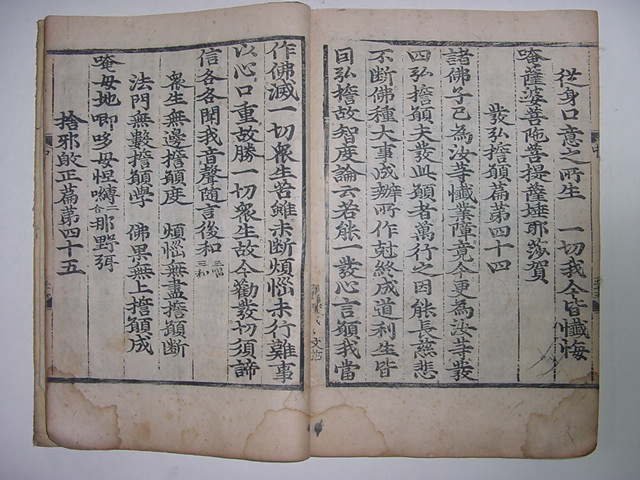 從身口意之所生　一切我今皆懺悔
唵薩婆菩陁菩提薩埵耶莎賀
發弘誓願篇第四十四
諸佛子已為汝等懺業障竟今更為汝等發
四弘誓願夫發此願者萬行之因能長慈悲
不断佛種大事成辦所作尅終成道利生皆
因弘誓故智度論云若能一發心言願我當
作佛滅一切衆生苦雖未斷煩惱未行難事
以心口重故勝一切衆生故今勸發切須諦
信各各聞我音聲隨言後和三唱三和
衆生無邊誓願度　煩惱無盡誓願断
法門無數誓願學　佛果無上誓願成
唵母地唧哆母怛縛二合那野弭
捨邪敀正篇第四十五